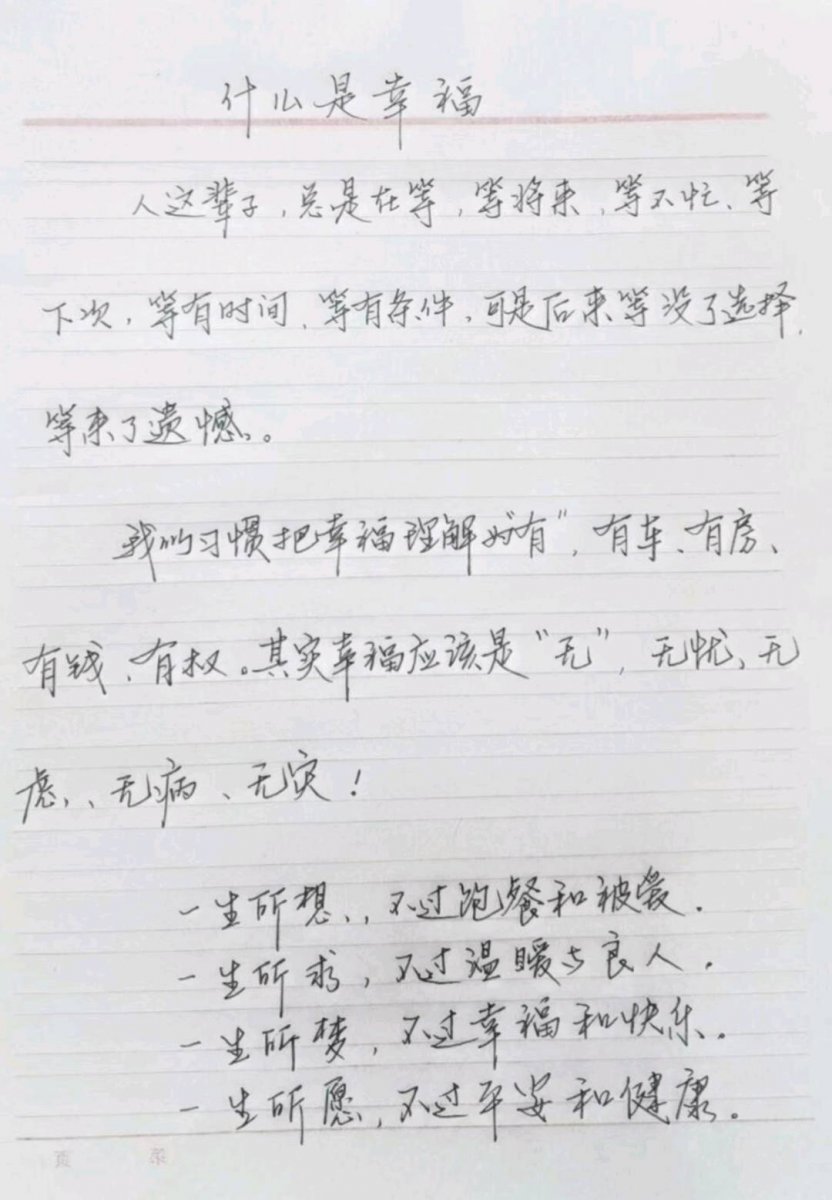 什么是幸福
人这辈子，总是在等，等将来，等不忙、等
下次，等有时间、等有条件，可是后来等没了选择，
等来了遗憾。
我们习惯把幸福理解为“有”，有车、有房、
有钱、有权。其实幸福应该是“无”，无忧、无
虑、无病、无灾！
一生所想，不过饱餐和被爱．
一生所求，不过温暖与良人．
一生所梦，不过幸福和快乐．
一生所愿，不过平安和健康．
页